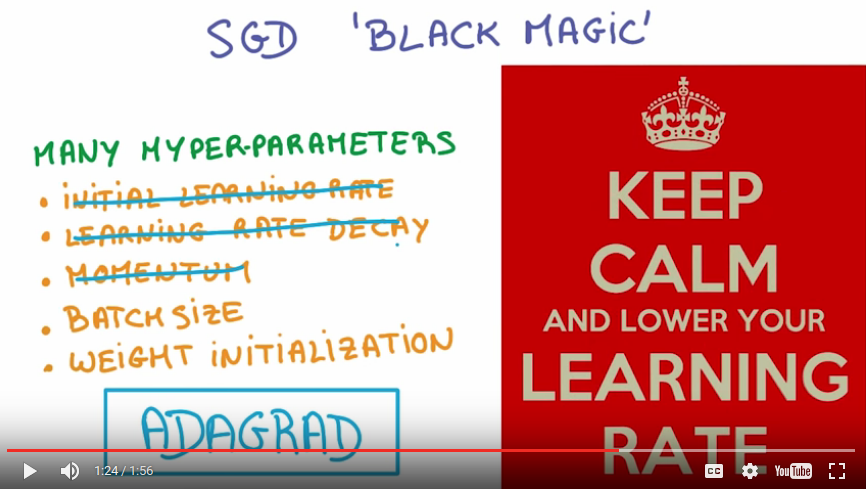 SGD 'BLACK MAGIC'
MANY HYPER-PARAMETERS
• INITIAL LEARNING RATE
• LEARNING RATE DECAY
• MOMENTUM
• BATCH SIZE
• WEIGHT INITIALIZATION
ADAGRAD
KEEP
CALM
AND LOWER YOUR
LEARNING
RATE
1:24 / 1:56
CC
YouTube